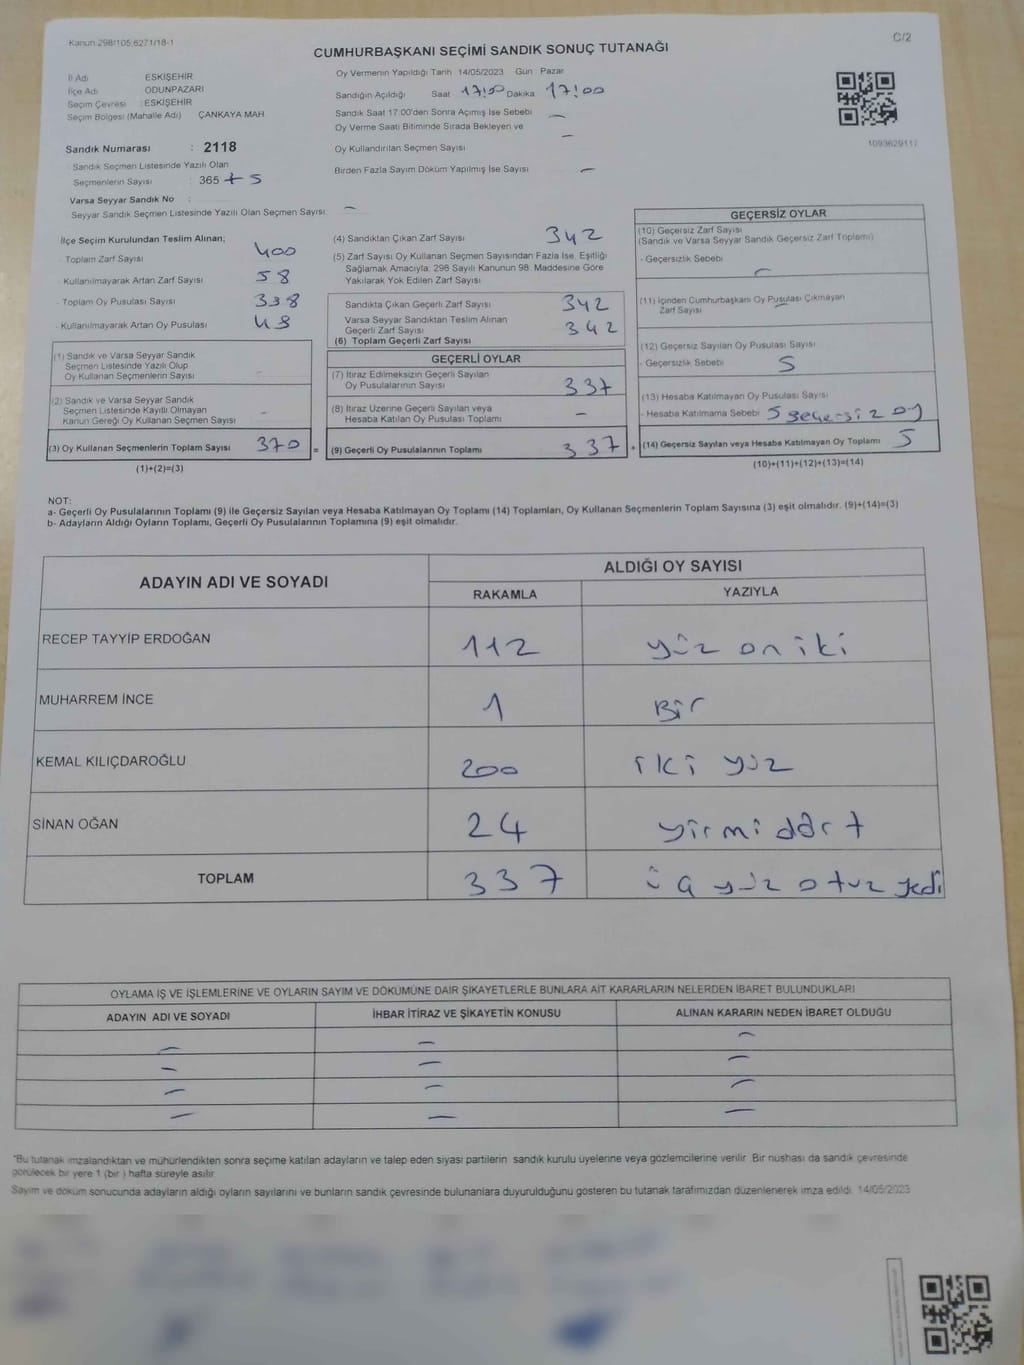 Kanun 298/105,6271/18-1
C/2
CUMHURBAŞKANI SEÇİMİ SANDIK SONUÇ TUTANAĞI
İl Adı ESKİŞEHİR
İlçe Adı ODUNPAZARI
Seçim Çevresi : ESKİŞEHİR
Seçim Bölgesi (Mahalle Adı) ÇANKAYA MAH.
Sandık Numarası : 2118
Sandık Seçmen Listesinde Yazılı Olan
Seçmenlerin Sayısı : 365 + 5
Varsa Seyyar Sandık No :
Seyyar Sandık Seçmen Listesinde Yazılı Olan Seçmen Sayısı: —
Oy Vermenin Yapıldığı Tarih 14/05/2023 Gün Pazar
Sandığın Açıldığı Saat 17:00 Dakika 17:00
Sandık Saat 17:00'den Sonra Açımış İse Sebebi —
Oy Verme Saati Bitiminde Sırada Bekleyen ve —
Oy Kullandırılan Seçmen Sayısı
Birden Fazla Sayım Döküm Yapılmış İse Sayısı —
1093629117
İlçe Seçim Kurulundan Teslim Alınan;
- Toplam Zarf Sayısı 400
- Kullanılmayarak Artan Zarf Sayısı 58
- Toplam Oy Pusulası Sayısı 338
- Kullanılmayarak Artan Oy Pusulası 48
(1) Sandık ve Varsa Seyyar Sandık
Seçmen Listesinde Yazılı Olup
Oy Kullanan Seçmenlerin Sayısı -
(2) Sandık ve Varsa Seyyar Sandık
Seçmen Listesinde Kayıtlı Olmayan
Kanun Gereği Oy Kullanan Seçmen Sayısı -
(3) Oy Kullanan Seçmenlerin Toplam Sayısı 370 =
(1)+(2)=(3)
(4) Sandıktan Çıkan Zarf Sayısı 342
(5) Zarf Sayısı Oy Kullanan Seçmen Sayısından Fazla İse, Eşitliği
Sağlamak Amacıyla, 298 Sayılı Kanunun 98. Maddesine Göre
Yakılarak Yok Edilen Zarf Sayısı
Sandıkta Çıkan Geçerli Zarf Sayısı 342
Varsa Seyyar Sandıktan Teslim Alınan
Geçerli Zarf Sayısı 342
(6) Toplam Geçerli Zarf Sayısı
GEÇERLİ OYLAR
(7) İtiraz Edilmeksizin Geçerli Sayılan
Oy Pusulalarının Sayısı 337
(8) İtiraz Üzerine Geçerli Sayılan veya
Hesaba Katılan Oy Pusulası Toplamı —
(9) Geçerli Oy Pusulalarının Toplamı 337 +
GEÇERSİZ OYLAR
(10) Geçersiz Zarf Sayısı
(Sandık ve Varsa Seyyar Sandık Geçersiz Zarf Toplamı)
- Geçersizlik Sebebi —
(11) İçinden Cumhurbaşkanı Oy Pusulası Çıkmayan
Zarf Sayısı —
(12) Geçersiz Sayılan Oy Pusulası Sayısı
- Geçersizlik Sebebi 5
(13) Hesaba Katılmayan Oy Pusulası Sayısı
- Hesaba Katılmama Sebebi 5 geçersiz oy
(14) Geçersiz Sayılan veya Hesaba Katılmayan Oy Toplamı 5
(10)+(11)+(12)+(13)=(14)
NOT:
a- Geçerli Oy Pusulalarının Toplamı (9) ile Geçersiz Sayılan veya Hesaba Katılmayan Oy Toplamı (14) Toplamları, Oy Kullanan Seçmenlerin Toplam Sayısına (3) eşit olmalıdır. (9)+(14)=(3)
b- Adayların Aldığı Oyların Toplamı, Geçerli Oy Pusulalarının Toplamına (9) eşit olmalıdır.
ADAYIN ADI VE SOYADI ALDIĞI OY SAYISI
RAKAMLA YAZIYLA
RECEP TAYYİP ERDOĞAN 112 yüz on iki
MUHARREM İNCE 1 Bir
KEMAL KILIÇDAROĞLU 200 iki yüz
SİNAN OĞAN 24 yirmi dört
TOPLAM 337 üç yüz otuz yedi
OYLAMA İŞ VE İŞLEMLERİNE VE OYLARIN SAYIM VE DÖKÜMÜNE DAİR ŞİKAYETLERLE BUNLARA AİT KARARLARIN NELERDEN İBARET BULUNDUKLARI
ADAYIN ADI VE SOYADI İHBAR İTİRAZ VE ŞİKAYETİN KONUSU ALINAN KARARIN NEDEN İBARET OLDUĞU
— — —
— — —
— — —
— — —
"Bu tutanak imzalandıktan ve mühürlendikten sonra seçime katılan adayların ve talep eden siyasi partilerin sandık kurulu üyelerine veya gözlemcilerine verilir. Bir nüshası da sandık çevresinde
görülecek bir yere 1 (bir ) hafta süreyle asılır.
Sayım ve döküm sonucunda adayların aldığı oyların sayılarını ve bunların sandık çevresinde bulunanlara duyurulduğunu gösteren bu tutanak tarafımızdan düzenlenerek imza edildi. 14/05/2023